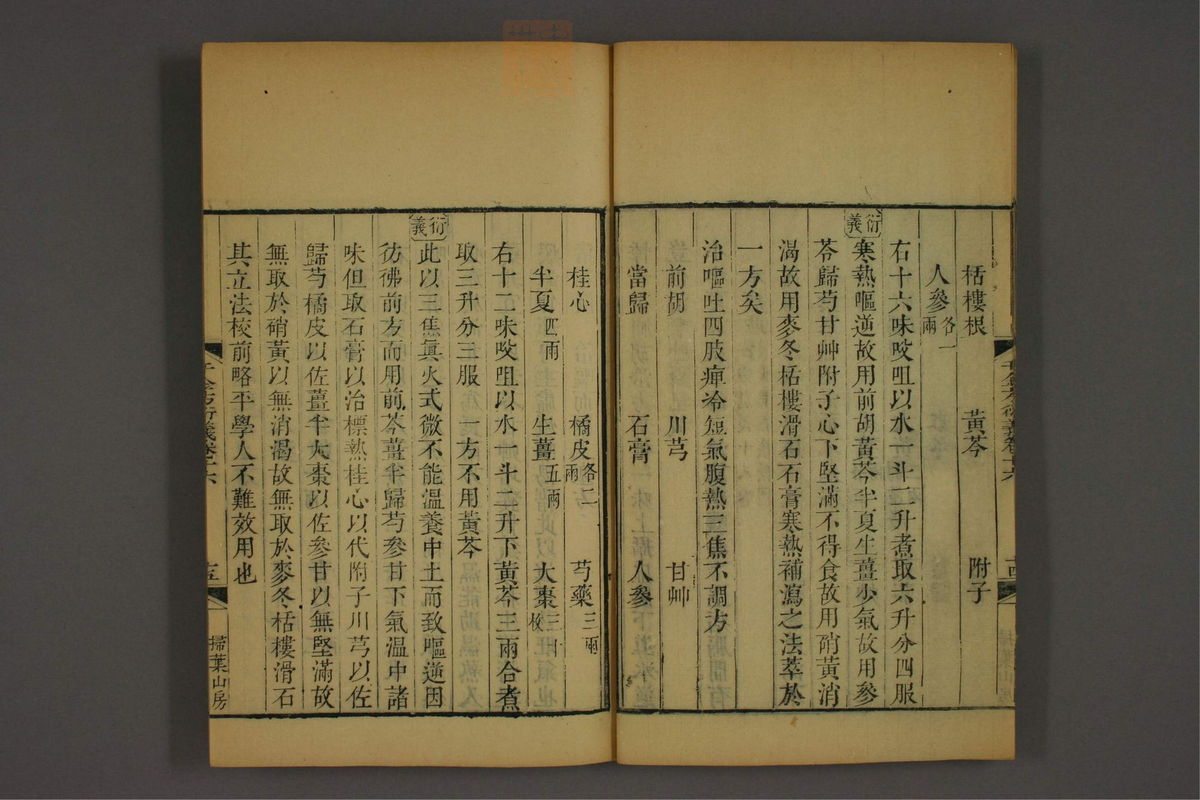 栝樓根　黃芩　附子
人參各一兩
右十六味㕮咀以水一斗二升煮取六升分四服
衍義
寒熱嘔逆故用前胡黃芩半夏生薑少氣故用參
苓歸芍甘艸附子心下堅滿不得食故用硝黃消
渴故用麥冬栝樓滑石石膏寒熱補瀉之法萃於
一方矣
治嘔吐四肢痺冷短氣腹熱三焦不調方
前胡　川芎　甘艸
當歸　石膏　人參
桂心　橘皮各二兩　芍藥三兩
半夏四兩　生薑五兩　大棗三十枚
右十二味㕮咀以水一斗二升下黃芩三兩合煮
取三升分三服　一方不用黃芩
衍義
此以三焦真火式微不能溫養中土而致嘔逆因
彷彿前方而用前芩薑半歸芍參甘下氣溫中諸
味但取石膏以治標熱桂心以代附子川芎以佐
歸芍橘皮以佐薑半大棗以佐參甘以無堅滿故
無取於硝黃以無消渴故無取於麥冬栝樓滑石
其立法校前略平學人不難效用也
千金方衍義卷十六
十五
掃葉山房